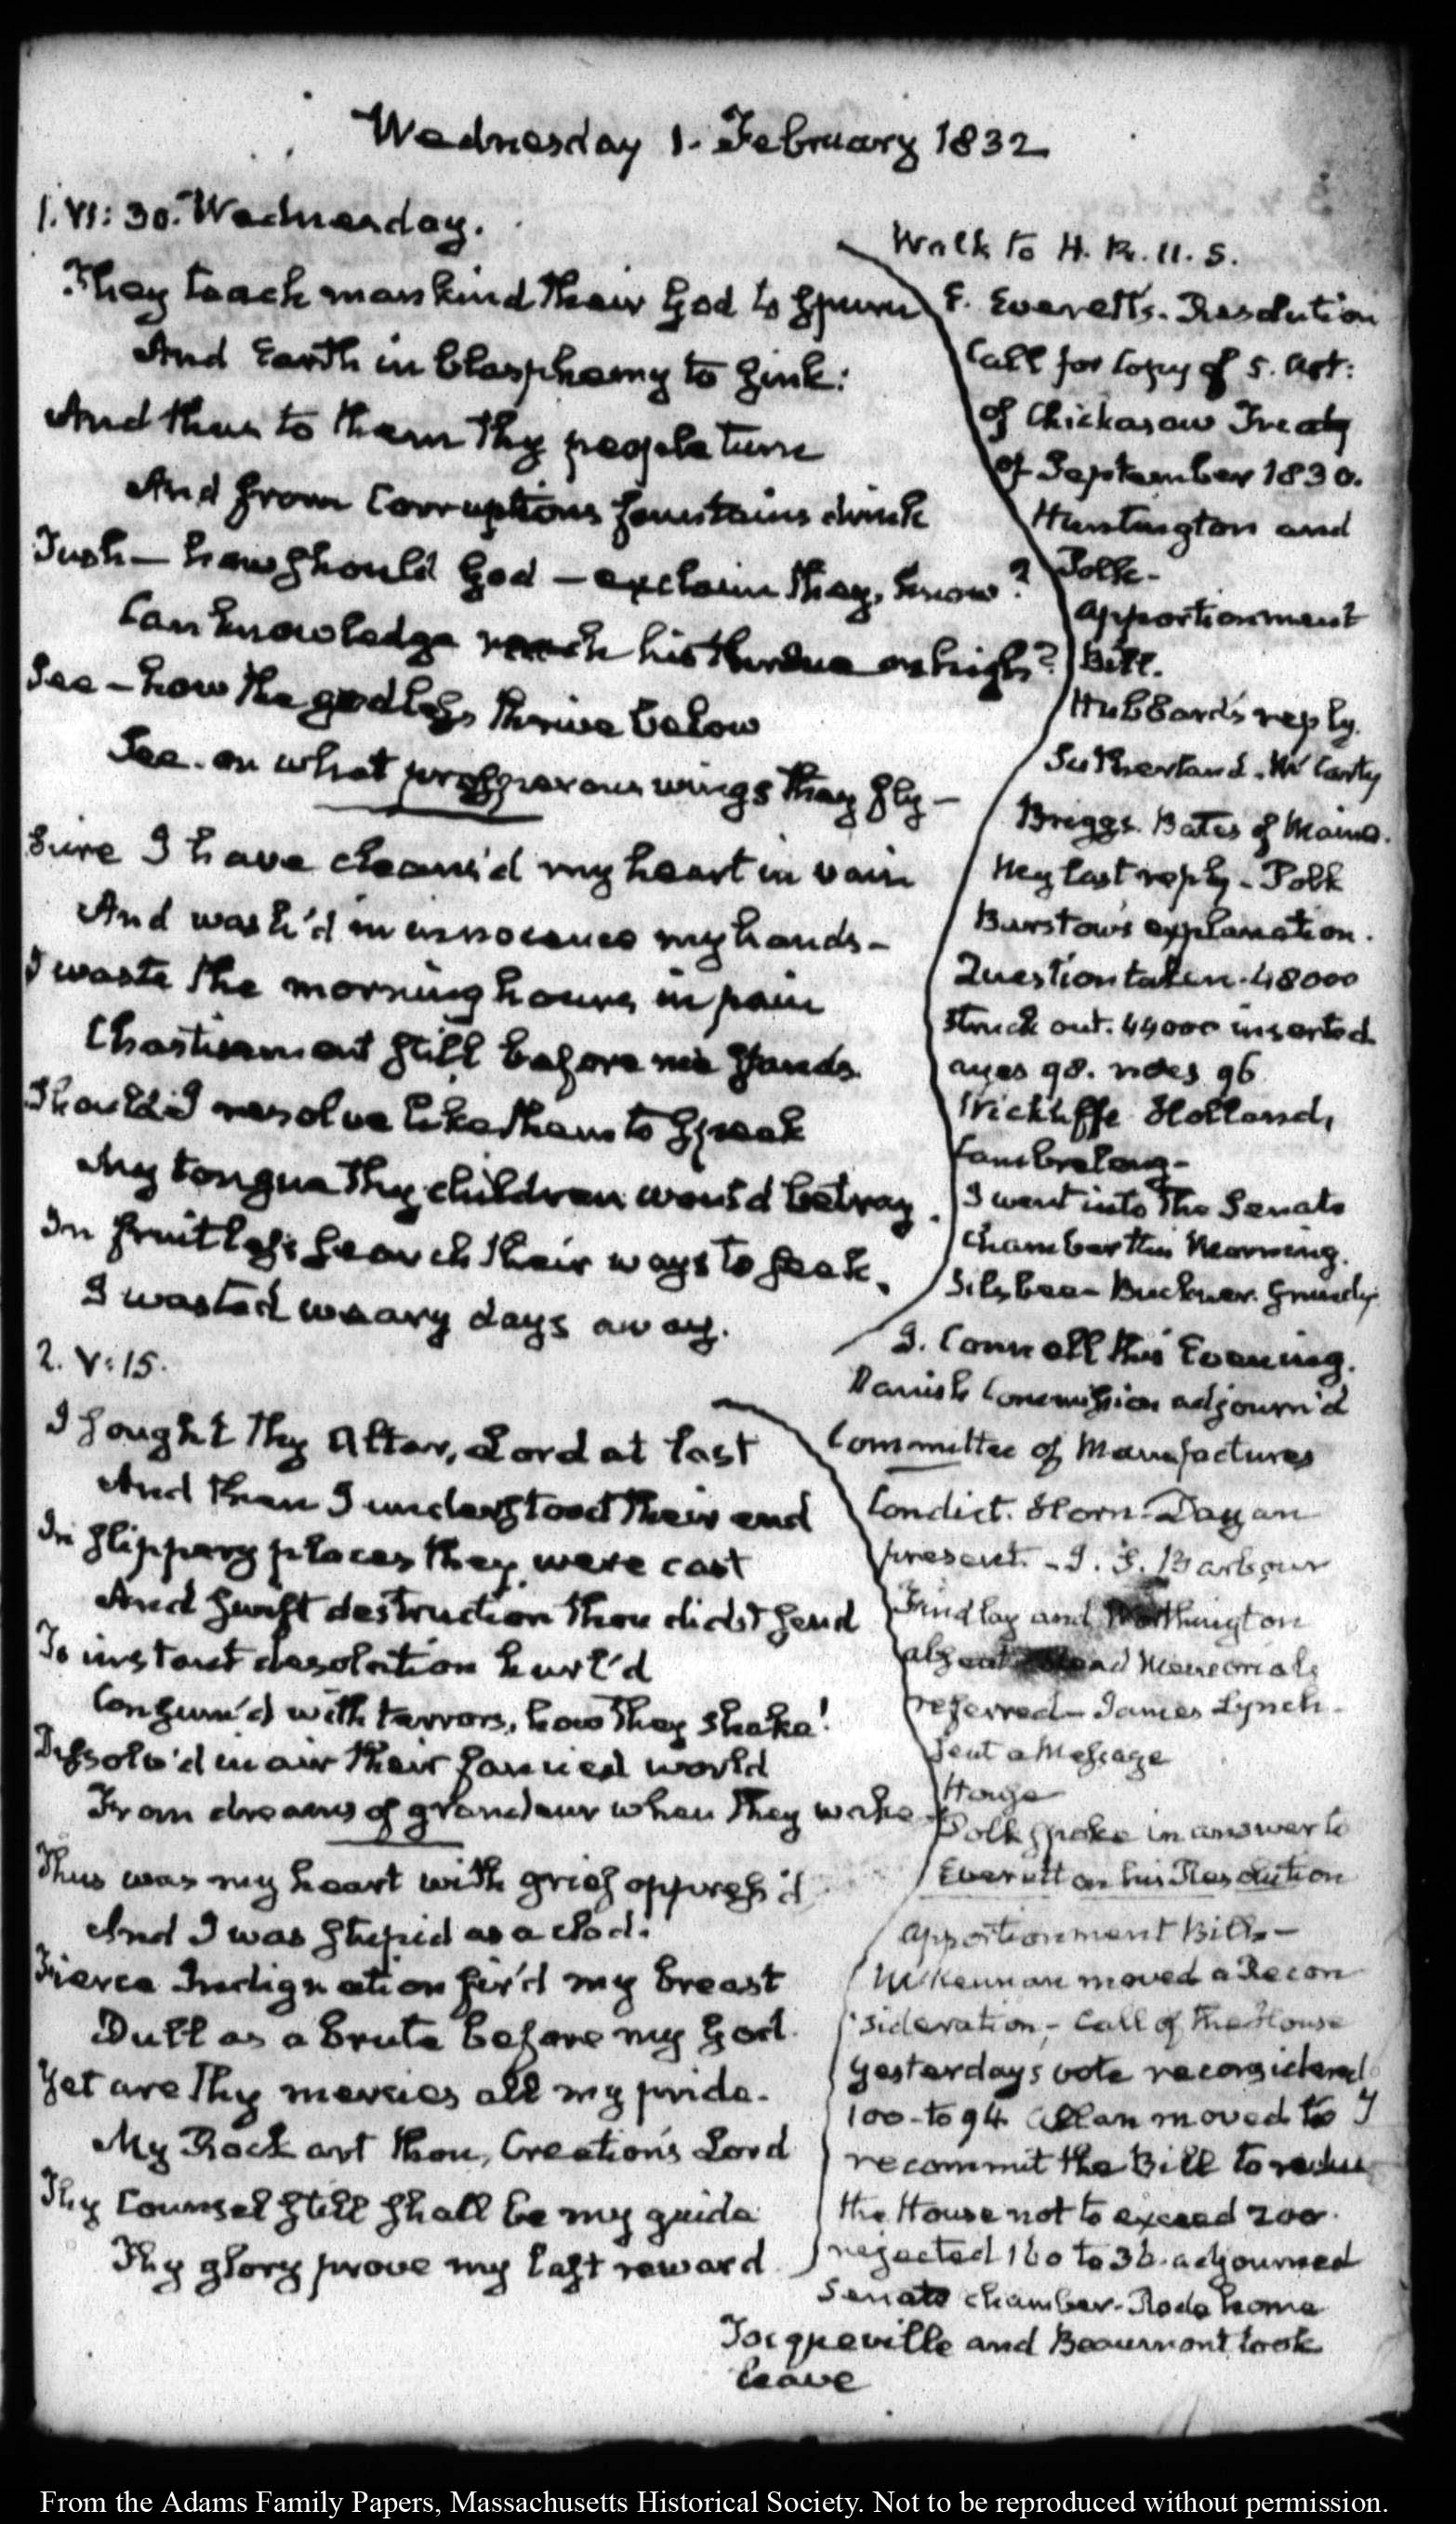 Wednesday 1. February 1832
1. VI: 30. Wednesday.
They teach mankind their God to spurn
And Earth in blasphemy to sink:
And thus to them thy people turn
And from Corruptions fountains drink
Tush — how should God — exclaim they, know?
Can knowledge reach his throne on high?
See — how the godless thrive below
See. on what prosperous wings they fly —
Sure I have cleans'd my heart in vain
And wash'd in innocence my hands —
I waste the morning hours in pain
Chastisement still before me stands.
Should I resolve like them to speak
My tongue thy children would betray.
In fruitless search their ways to seek,
I wasted weary days away.
2. V: 15.
I sought thy Altar, Lord at last
And then I understood their end
In slippery places they were cast
And swift destruction thou didst send
To instant desolation hurl'd
Consum'd with terrors, how they shake!
Dissolv'd in air their fancied world
From dreams of grandeur when they wake
Thus was my heart with grief oppress'd
And I was stupid as a clod.
Fierce Indignation fir'd my breast
Dull as a brute before my God.
Yet are thy mercies all my pride.
My Rock art thou, Creation's Lord
Thy Counsel still shall be my guide
Thy glory prove my last reward
Walk to H. R. U. S.
E. Everett's. Resolution
Call for Copy of 5. Art:
of Chickasaw Treaty
of September 1830.
Huntington and
Polk —
Apportionment
Bill.
Hubbard's reply.
Sutherland. McCarty
Briggs. Bates of Maine.
My last reply — Polk
Burstow's explanation.
Question taken. 48000
struck out. 44000 inserted
ayes 98. noes 96
Wickliffe Holland,
Cambreleng —
I went into the Senate
chamber this Morning.
Silsbee — Buckner. Grundy
J. Connell this Evening.
Danish Commission adjourn'd
Committee of Manufactures
Condict. Horn — Dayan
present. — J. S. Barbour
Findlay and Worthington
absent and Memorials
referred — James Lynch —
sent a Message
House
Polk spoke in answer to
Everett on his Resolution
Apportionment Bill —
McKennan moved a Recon
sideration — Call of the House
Yesterdays vote reconsidered
100 — to 94. Allan moved to
recommit the Bill to
the House not to exceed 200.
rejected 160 to 36. adjourned
Senate chamber — Rode home
Tocqueville and Beaumont took
leave
From the Adams Family Papers, Massachusetts Historical Society. Not to be reproduced without permission.